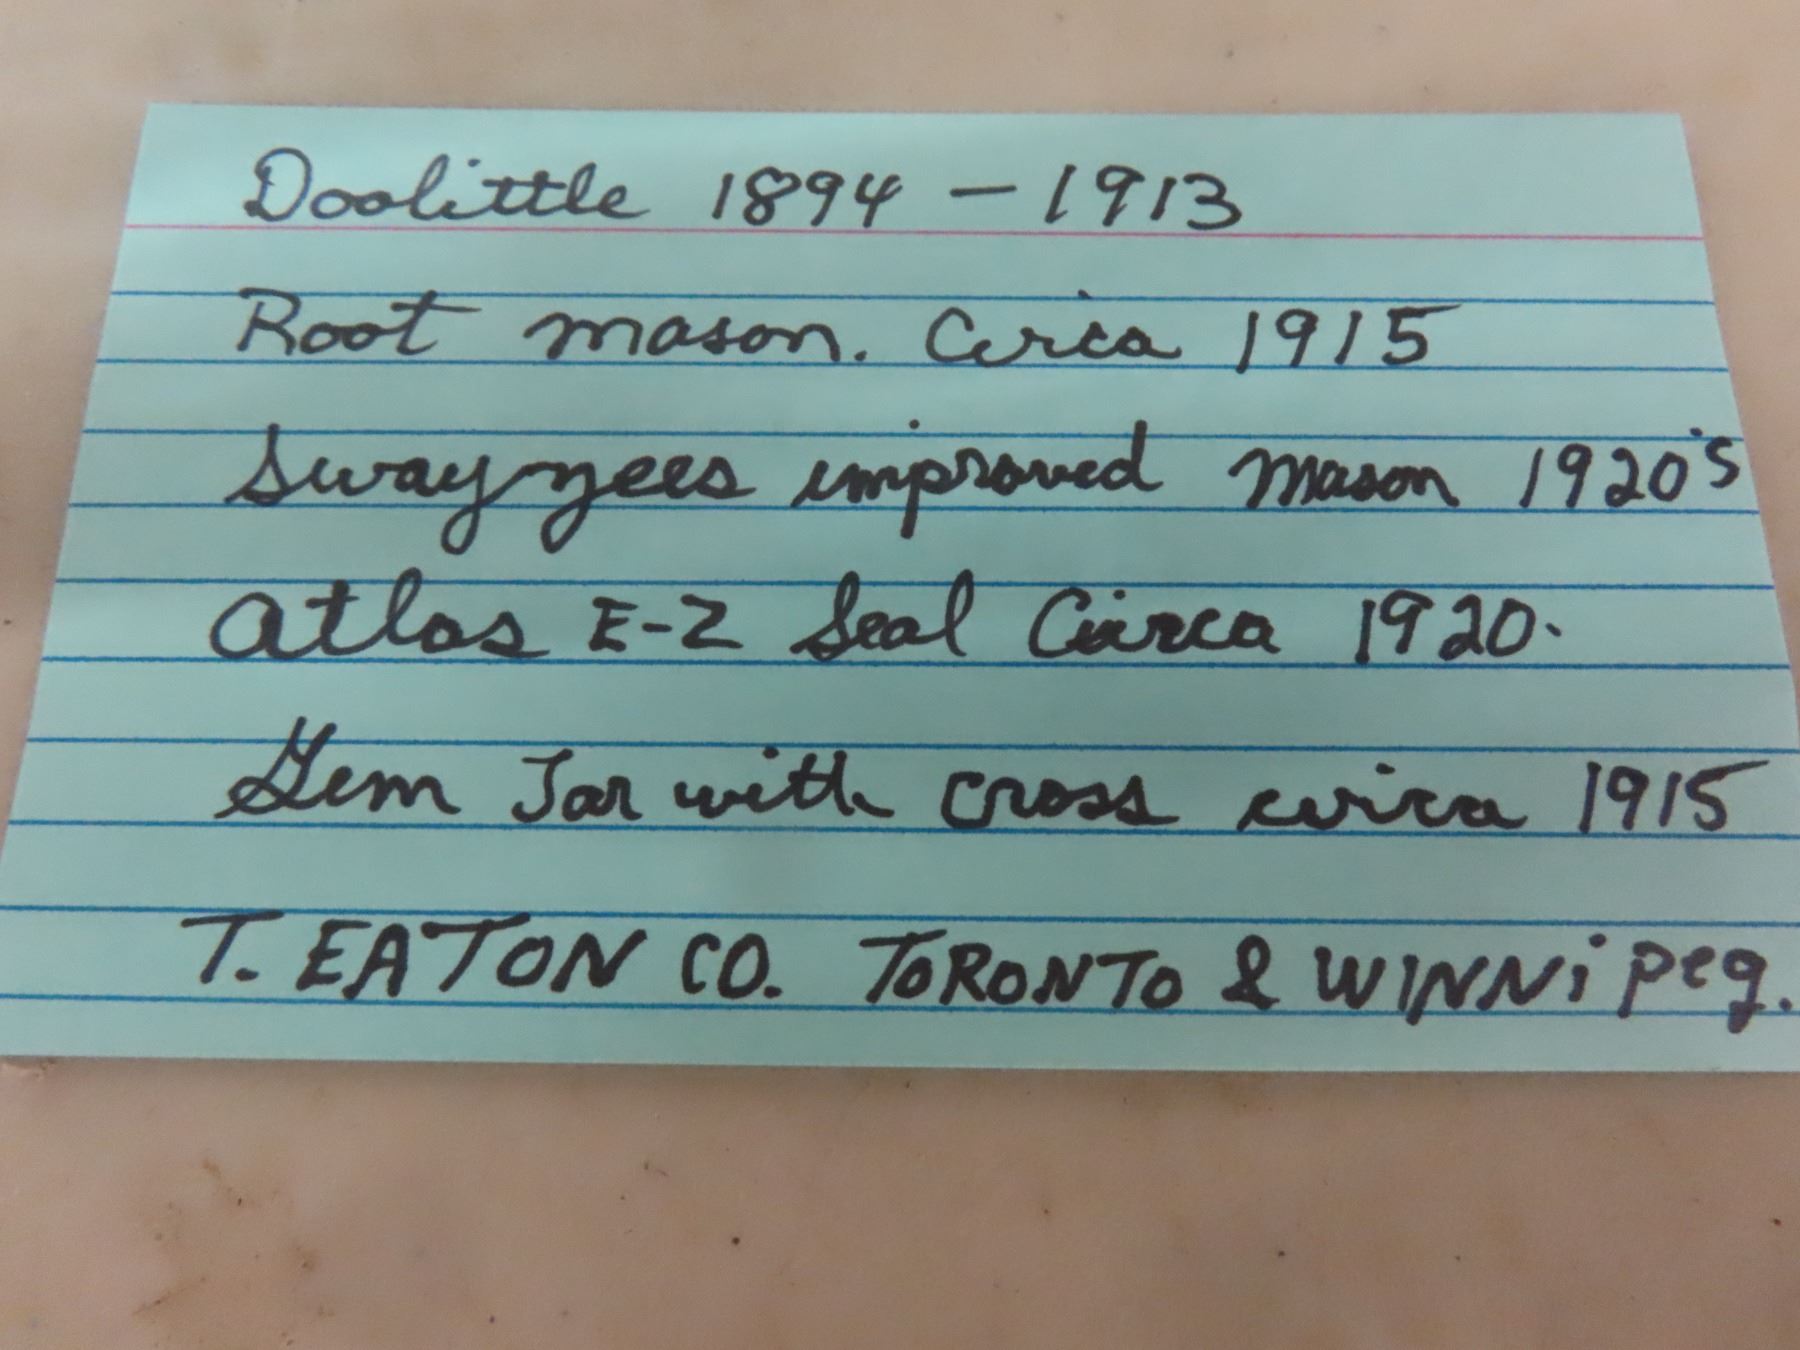 Doolittle 1894 - 1913
Root mason. Circa 1915
Swayzees improved Mason 1920's
Atlas E-Z Seal Circa 1920.
Gem Jar with cross circa 1915
T. EATON CO. TORONTO & WINNipeg.